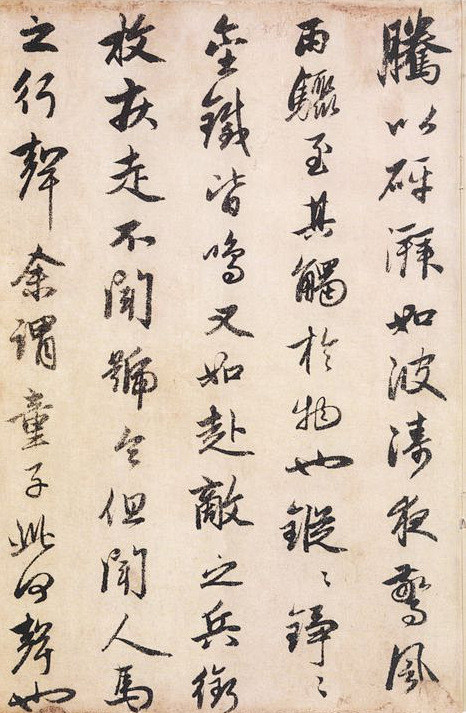 騰以砰湃如波濤夜驚風
雨驟至其觸於物也鏦〻錚〻
金鐵皆鳴又如赴敵之兵銜
枚疾走不聞號令但聞人馬
之行聲余謂童子此何聲也